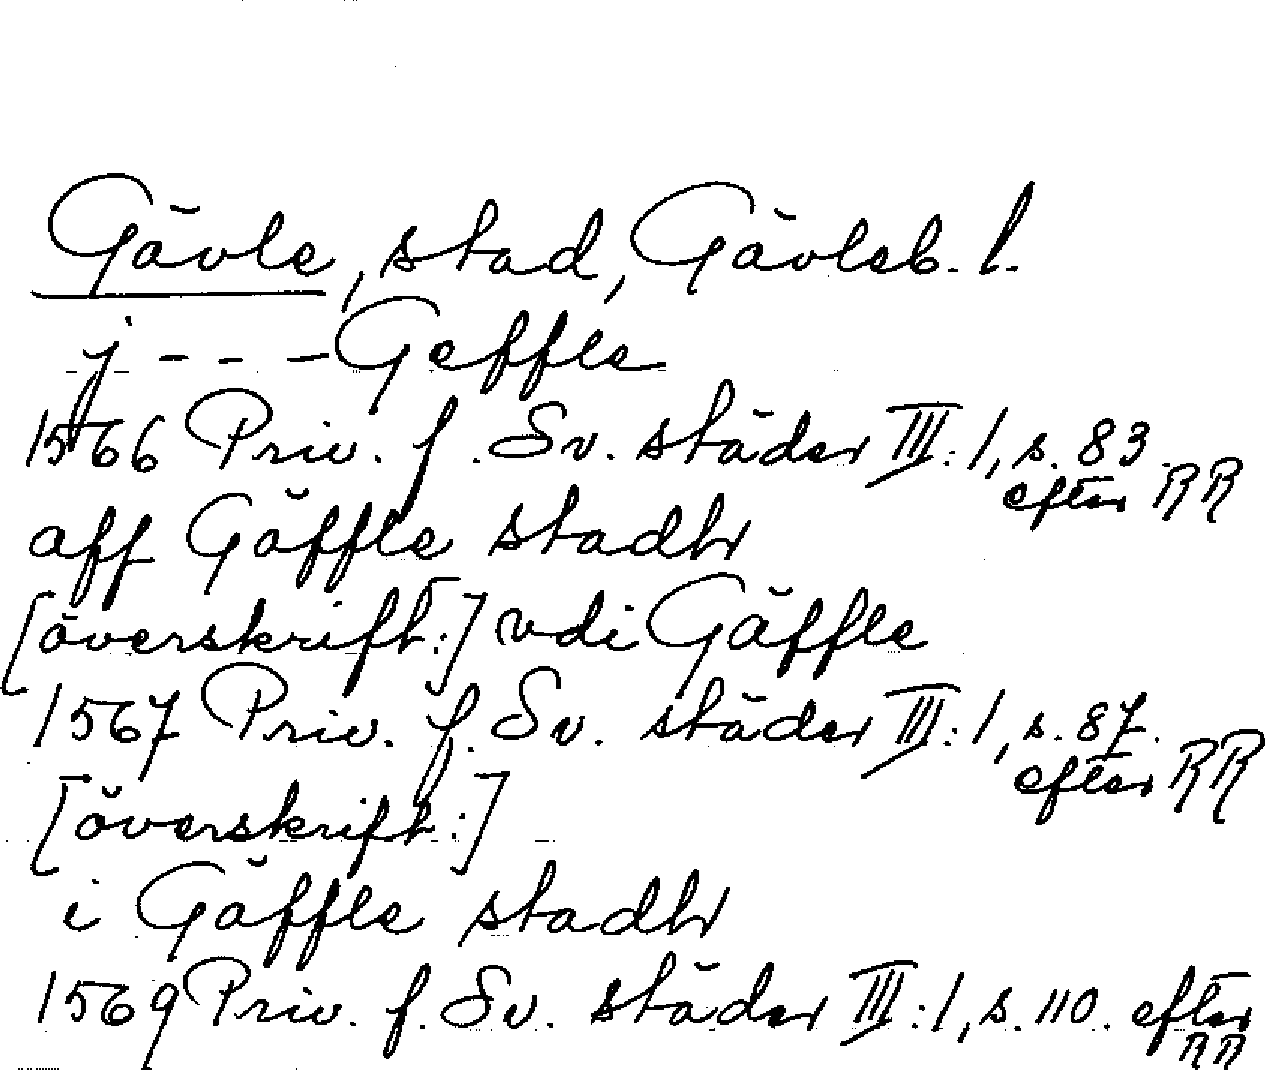 Gävle, stad, Gävleb. l.
j - - - Geffle
1566 Priv. f. Sv. städer III:1, s. 83.
efter RR
aff Gäffle stadh
[överskrift:] vdi Gäffle
1567 Priv. f. Sv. städer III:1, s. 87.
efter RR
[överskrift:]
i Gäffle stadh
1569 Priv. f. Sv. städer III:1, s. 110. efter
RR